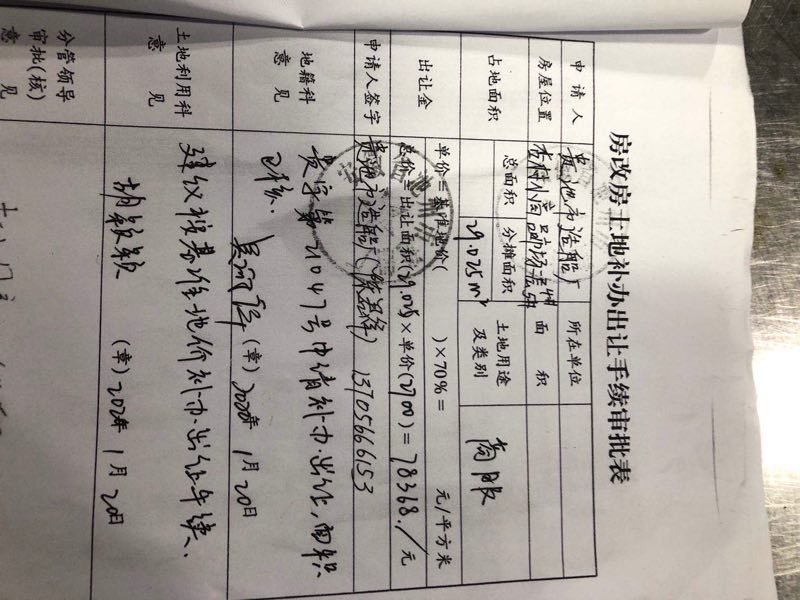 房改房土地补办出让手续审批表
申请人 贵池市造船厂 所在单位
房屋位置 面积
占地面积 总面积 分摊面积 29.025m² 土地用途及类别 商服
出让金 单价=基准地价( )×70%= 元/平方米
总价=出让面积(29.025×单价(2700)=78368./元
申请人签字 贵池市造船厂 13705666153
地籍科意见 贵字第21047号申请补办出让,面积
已核.
(章) 2020年1月20日
土地利用科意见 建议按基准地价补办出让手续.
(章) 2020年1月20日
分管领导审批(核)意见